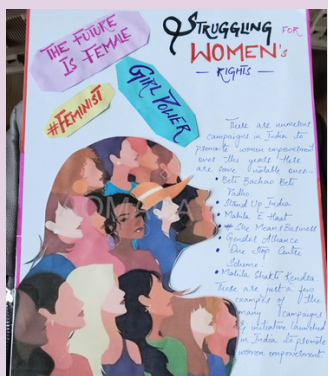 THE FUTURE
IS FEMALE
STRUGGLING FOR
WOMEN's
RIGHTS
#FEMINIST
GIRL POWER
There are numerous
campaigns in India to
promote women empowerment
over the years. Here
are some notable ones—
• Beti Bachao Beti
Padho
• Stand Up India
• Mahila E Haat
# She Means Business
• Gender Alliance
• One Stop Centre
Scheme
• Mahila Shakti Kendra.
These are just a few
examples of the
many campaigns
& initiative launched
in India to promote
women empowerment